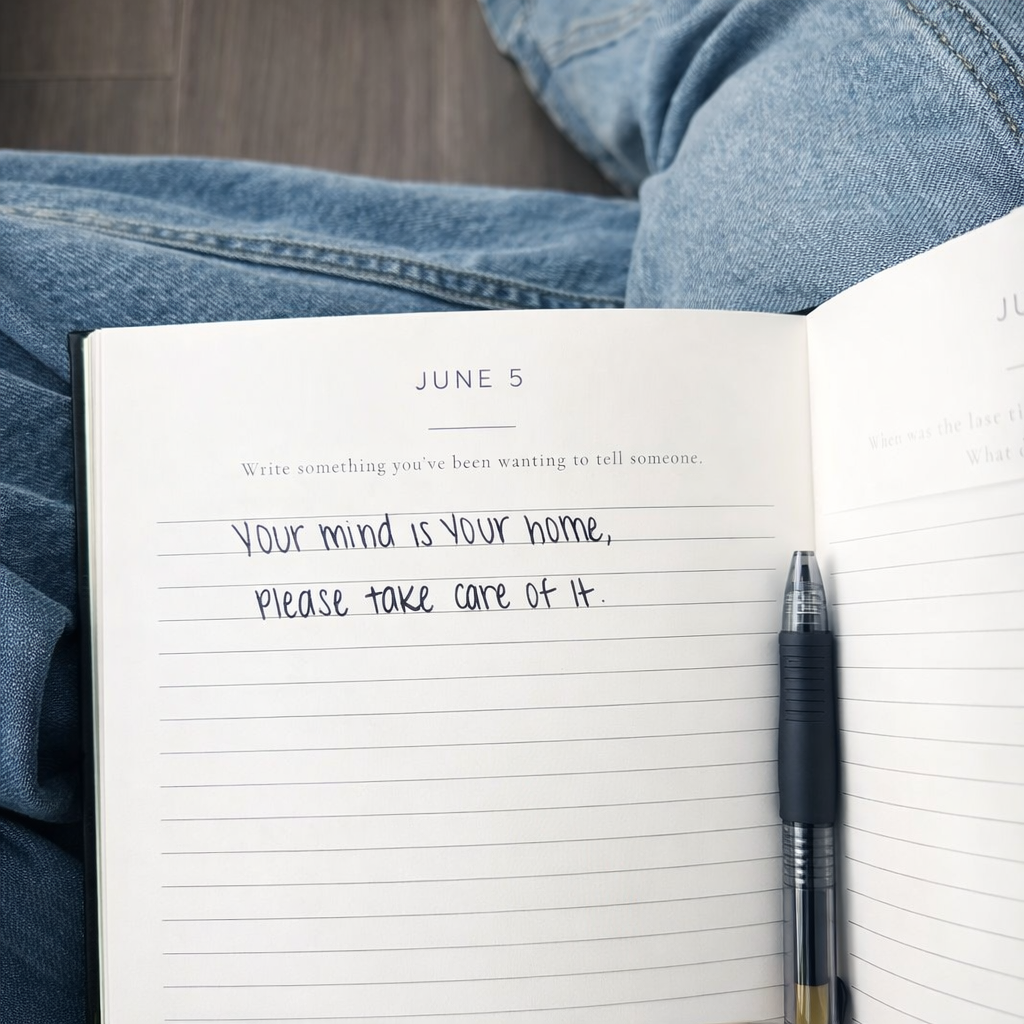 JUNE 5
Write something you've been wanting to tell someone.
Your mind is your home,
please take care of it.
When was the last
What